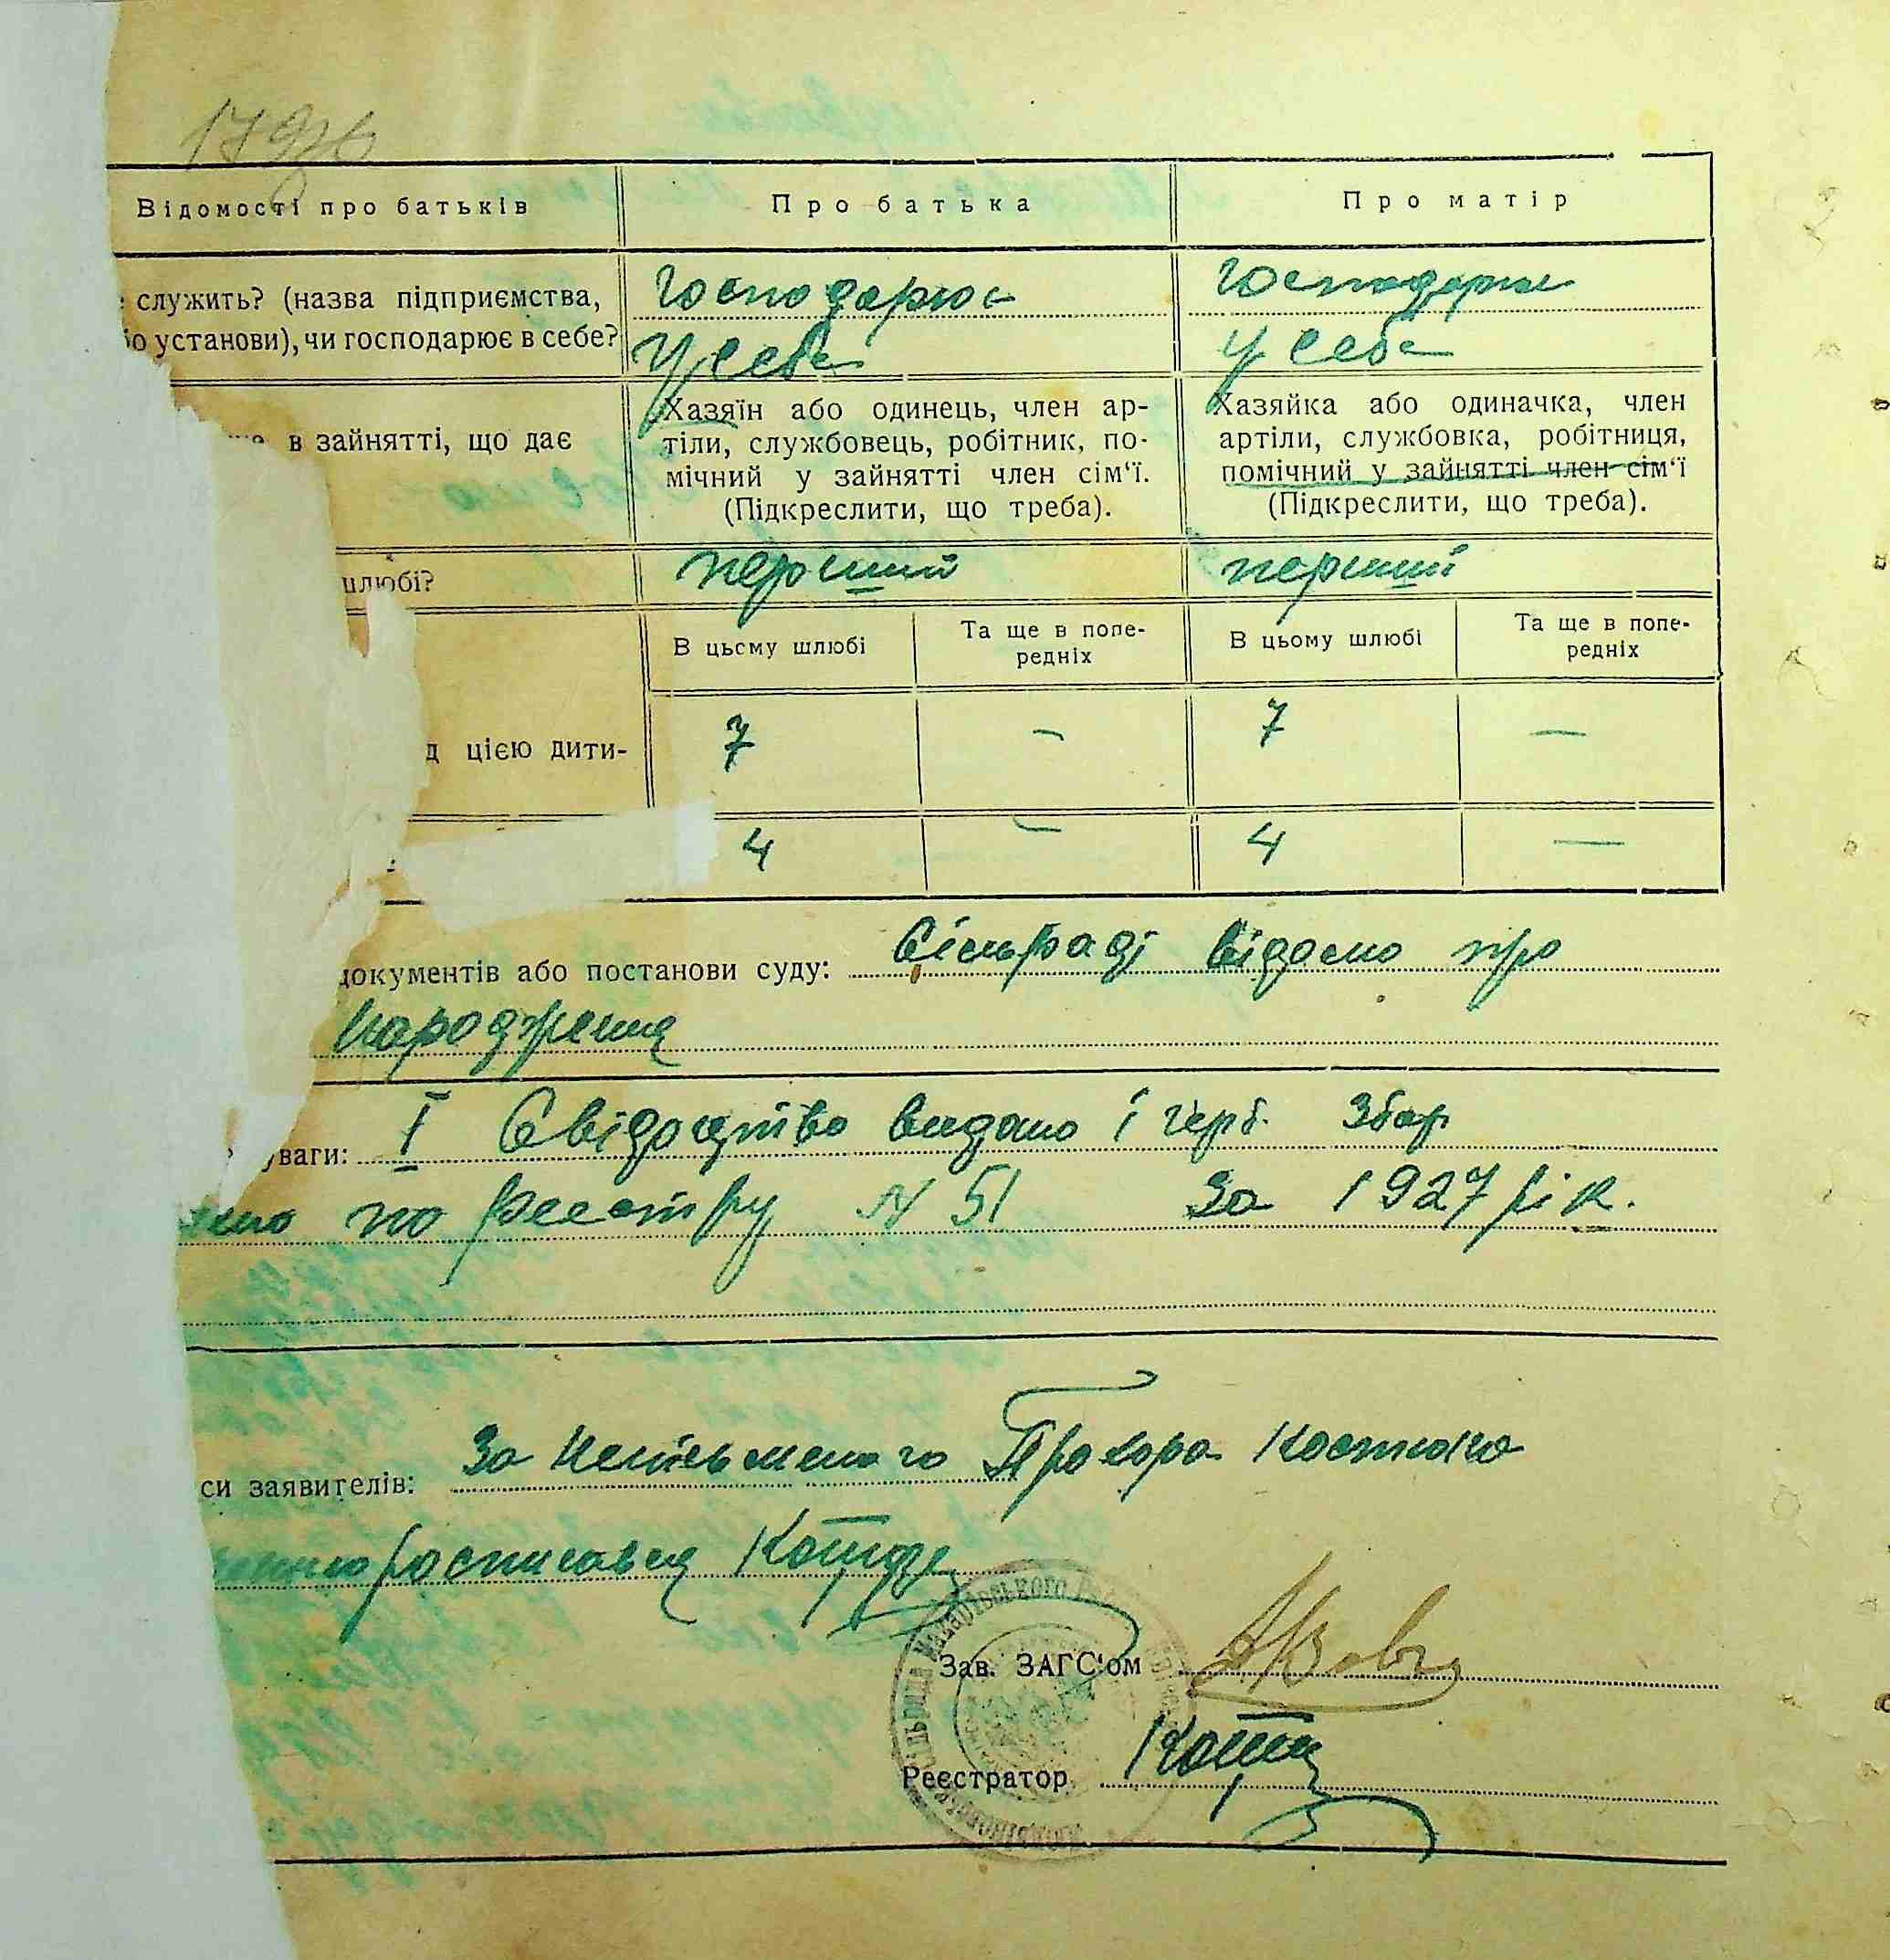 Відомості про батьків
Про батька
Про матір
служить? (назва підприємства,
установи), чи господарює в себе?
господарює
у себе
господарює
у себе
в зайнятті, що дає
Хазяїн або одинець, член ар-
тіли, службовець, робітник, по-
мічний у зайнятті член сім‘ї.
(Підкреслити, що треба).
Хазяйка або одиначка, член
артіли, службовка, робітниця,
помічний у зайнятті член сім‘ї
(Підкреслити, що треба).
шлюбі?
перший
перший
В цьому шлюбі
Та ще в попе-
редніх
В цьому шлюбі
Та ще в попе-
редніх
цією дити-
7
—
7
—
4
—
4
—
документів або постанови суду: Сільраді відомо про
народження
уваги: І Свідоцтво видано і герб. збор
по реестру N 51 за 1927 рік.
си заявителів: За неписьменого Прохора
росписався
Зав. ЗАГС‘ом
Реєстратор